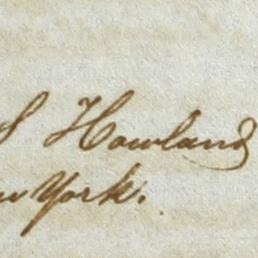 S Howland
w York.